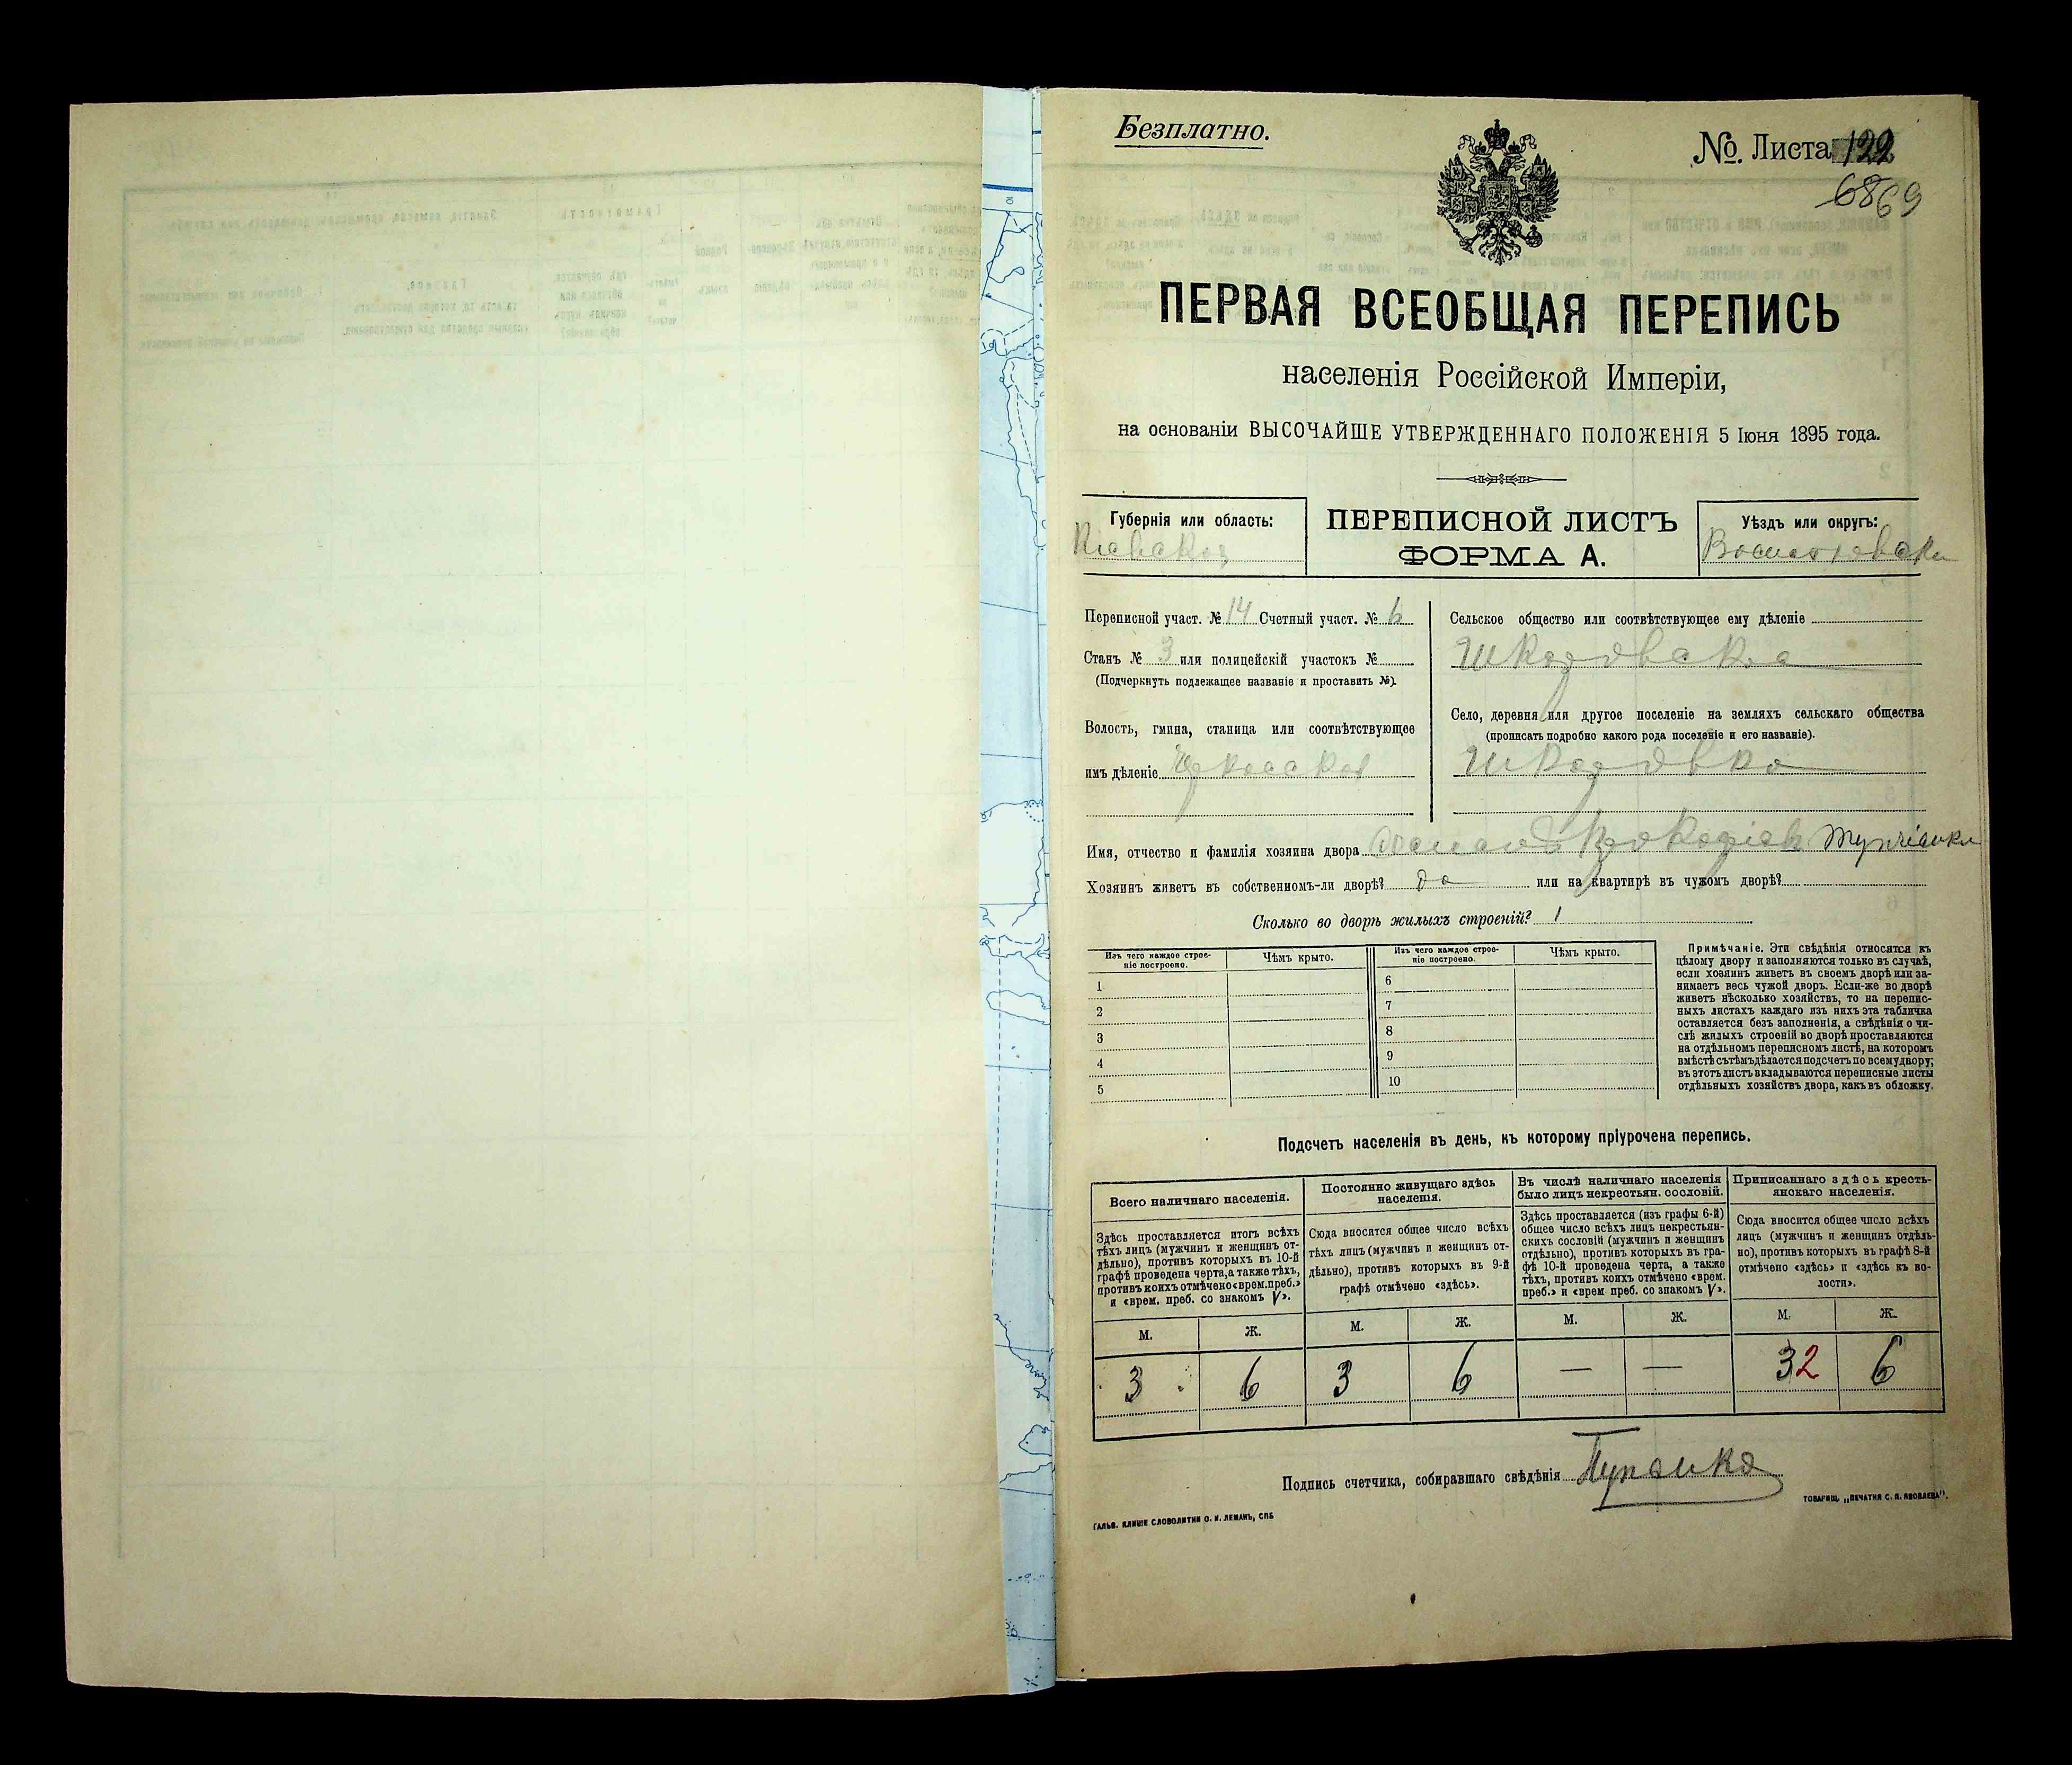 Безплатно.
№. Листа 122
6869
ПЕРВАЯ ВСЕОБЩАЯ ПЕРЕПИСЬ
населенія Россійской Имперіи,
на основаніи ВЫСОЧАЙШЕ УТВЕРЖДЕННАГО ПОЛОЖЕНІЯ 5 Іюня 1895 года.
Губернія или область:
Кіевская
ПЕРЕПИСНОЙ ЛИСТЪ
ФОРМА А.
Уѣздъ или округъ:
Переписной участ. № 14 Счетный участ. № 6
Станъ № 3 или полицейскій участокъ №
(Подчеркнуть подлежащее названіе и проставить №).
Волость, гмина, станица или соотвѣтствующее
имъ дѣленіе
Сельское общество или соотвѣтствующее ему дѣленіе
Шкаровская
Село, деревня или другое поселеніе на земляхъ сельскаго общества
(прописать подробно какого рода поселеніе и его названіе).
Шкаровка
Имя, отчество и фамилія хозяина двора
Хозяинъ живетъ въ собственномъ-ли дворѣ? да или на квартирѣ въ чужомъ дворѣ?
Сколько во дворѣ жилыхъ строеній? 1
Изъ чего каждое строе-
ніе построено.
Чѣмъ крыто.
1
2
3
4
5
Изъ чего каждое строе-
ніе построено.
Чѣмъ крыто.
6
7
8
9
10
Примѣчаніе. Эти свѣдѣнія относятся къ
цѣлому двору и заполняются только въ случаѣ,
если хозяинъ живетъ въ своемъ дворѣ или за-
нимаетъ весь чужой дворъ. Если-же во дворѣ
живетъ нѣсколько хозяйствъ, то на перепис-
ныхъ листахъ каждаго изъ нихъ эта табличка
оставляется безъ заполненія, а свѣдѣнія о чи-
слѣ жилыхъ строеній во дворѣ проставляются
на отдѣльномъ переписномъ листѣ, на которомъ
вмѣстѣ съ тѣмъ дѣлается подсчетъ по всему двору;
въ этотъ листъ вкладываются переписные листы
отдѣльныхъ хозяйствъ двора, какъ въ обложку.
Подсчетъ населенія въ день, къ которому пріурочена перепись.
Всего наличнаго населенія.
Здѣсь проставляется итогъ всѣхъ
тѣхъ лицъ (мужчинъ и женщинъ от-
дѣльно), противъ которыхъ въ 10-й
графѣ проведена черта, а также тѣхъ,
противъ коихъ отмѣчено «врем. преб.»
и «врем. преб. со знакомъ V».
М.
Ж.
3
6
Постоянно живущаго здѣсь
населенія.
Сюда вносится общее число всѣхъ
тѣхъ лицъ (мужчинъ и женщинъ от-
дѣльно), противъ которыхъ въ 9-й
графѣ отмѣчено «здѣсь».
М.
Ж.
3
6
Въ числѣ наличнаго населенія
было лицъ некрестьян. сословій.
Здѣсь проставляется (изъ графы 6-й)
общее число всѣхъ лицъ некрестьян-
скихъ сословій (мужчинъ и женщинъ
отдѣльно), противъ которыхъ въ гра-
фѣ 10-й проведена черта, а также
тѣхъ, противъ коихъ отмѣчено «врем.
преб.» и «врем преб. со знакомъ V».
М.
Ж.
—
—
Приписаннаго здѣсь кресть-
янскаго населенія.
Сюда вносится общее число всѣхъ
лицъ (мужчинъ и женщинъ отдѣль-
но), противъ которыхъ въ графѣ 8-й
отмѣчено «здѣсь» и «здѣсь къ во-
лости».
М.
Ж.
32
6
Подпись счетчика, собиравшаго свѣдѣнія
ГАЛЬВ. КЛИШЕ СЛОВОЛИТНИ О. И. ЛЕМАНЪ, СПБ
ТОВАРИЩ. „ПЕЧАТНЯ С. П. ЯКОВЛЕВА".